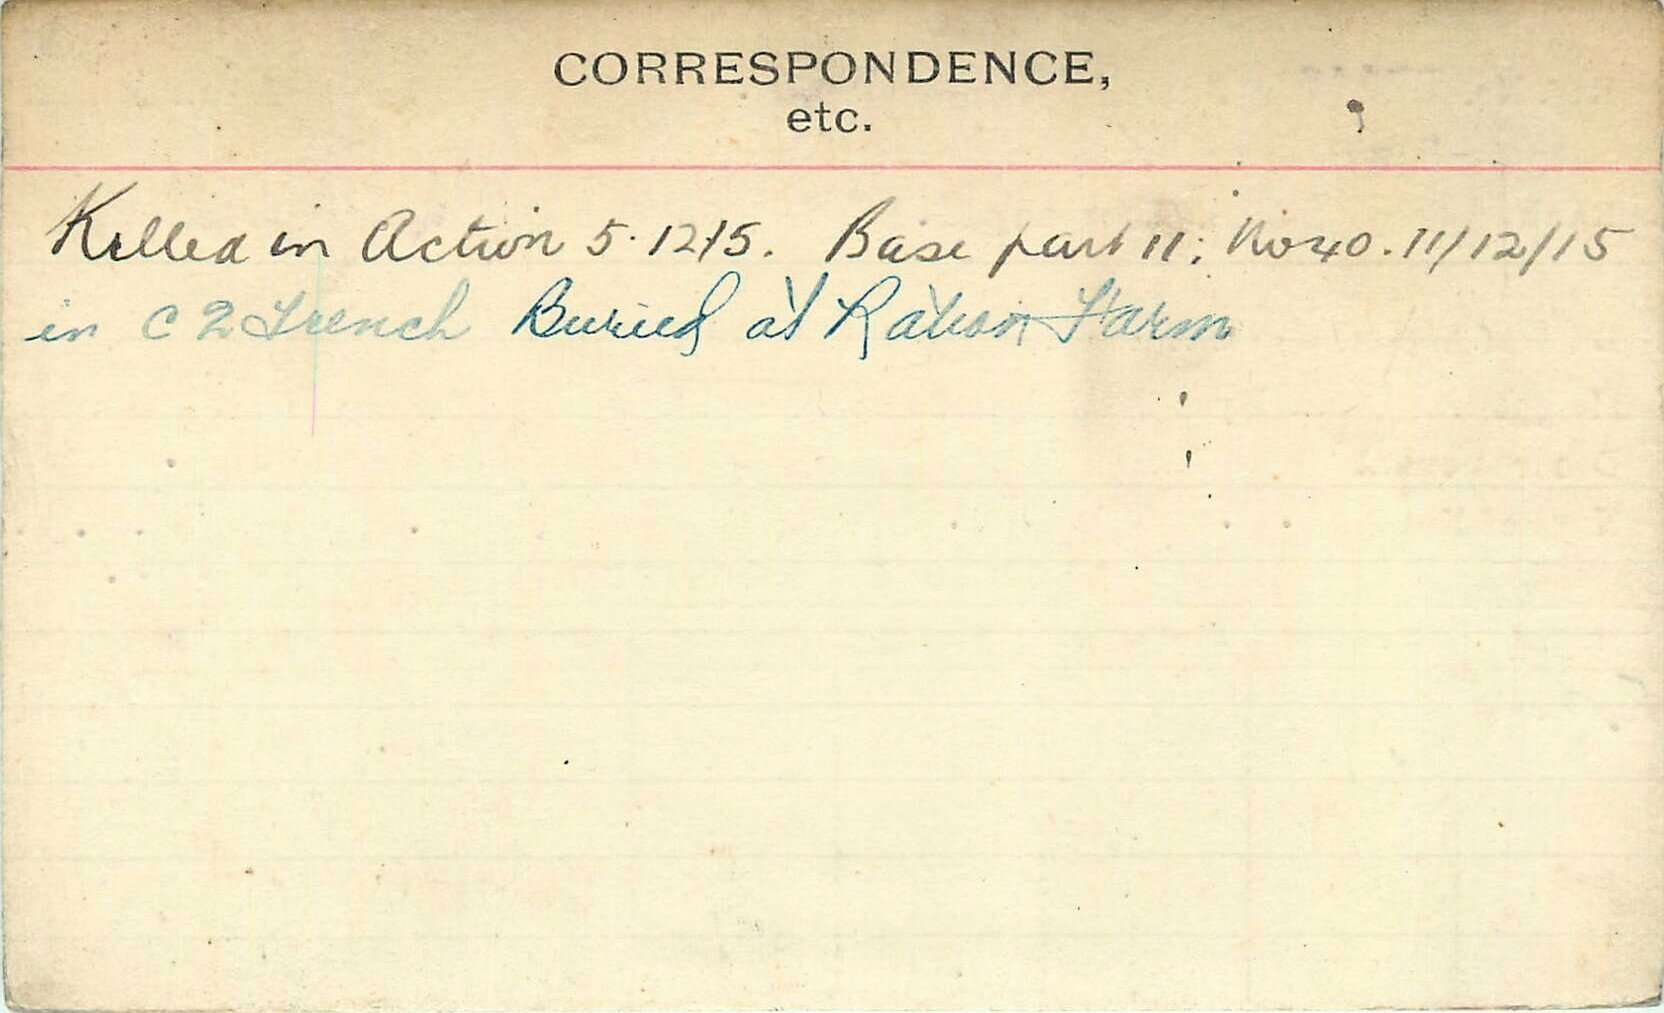 CORRESPONDENCE,
etc.
Killed in Action 5.12/15. Base part 11; No 40. 11/12/15
in C 2 Trench Buried at Ration Farm